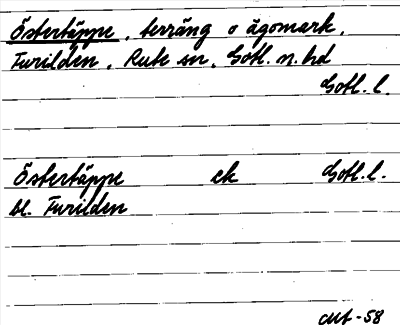 Östertäppe, terräng o ägomark,
Furilden, Rute sn, Gotl. n. hd
Gotl. l.
Östertäppe ek Gotl. l.
bl. Furilden
-58